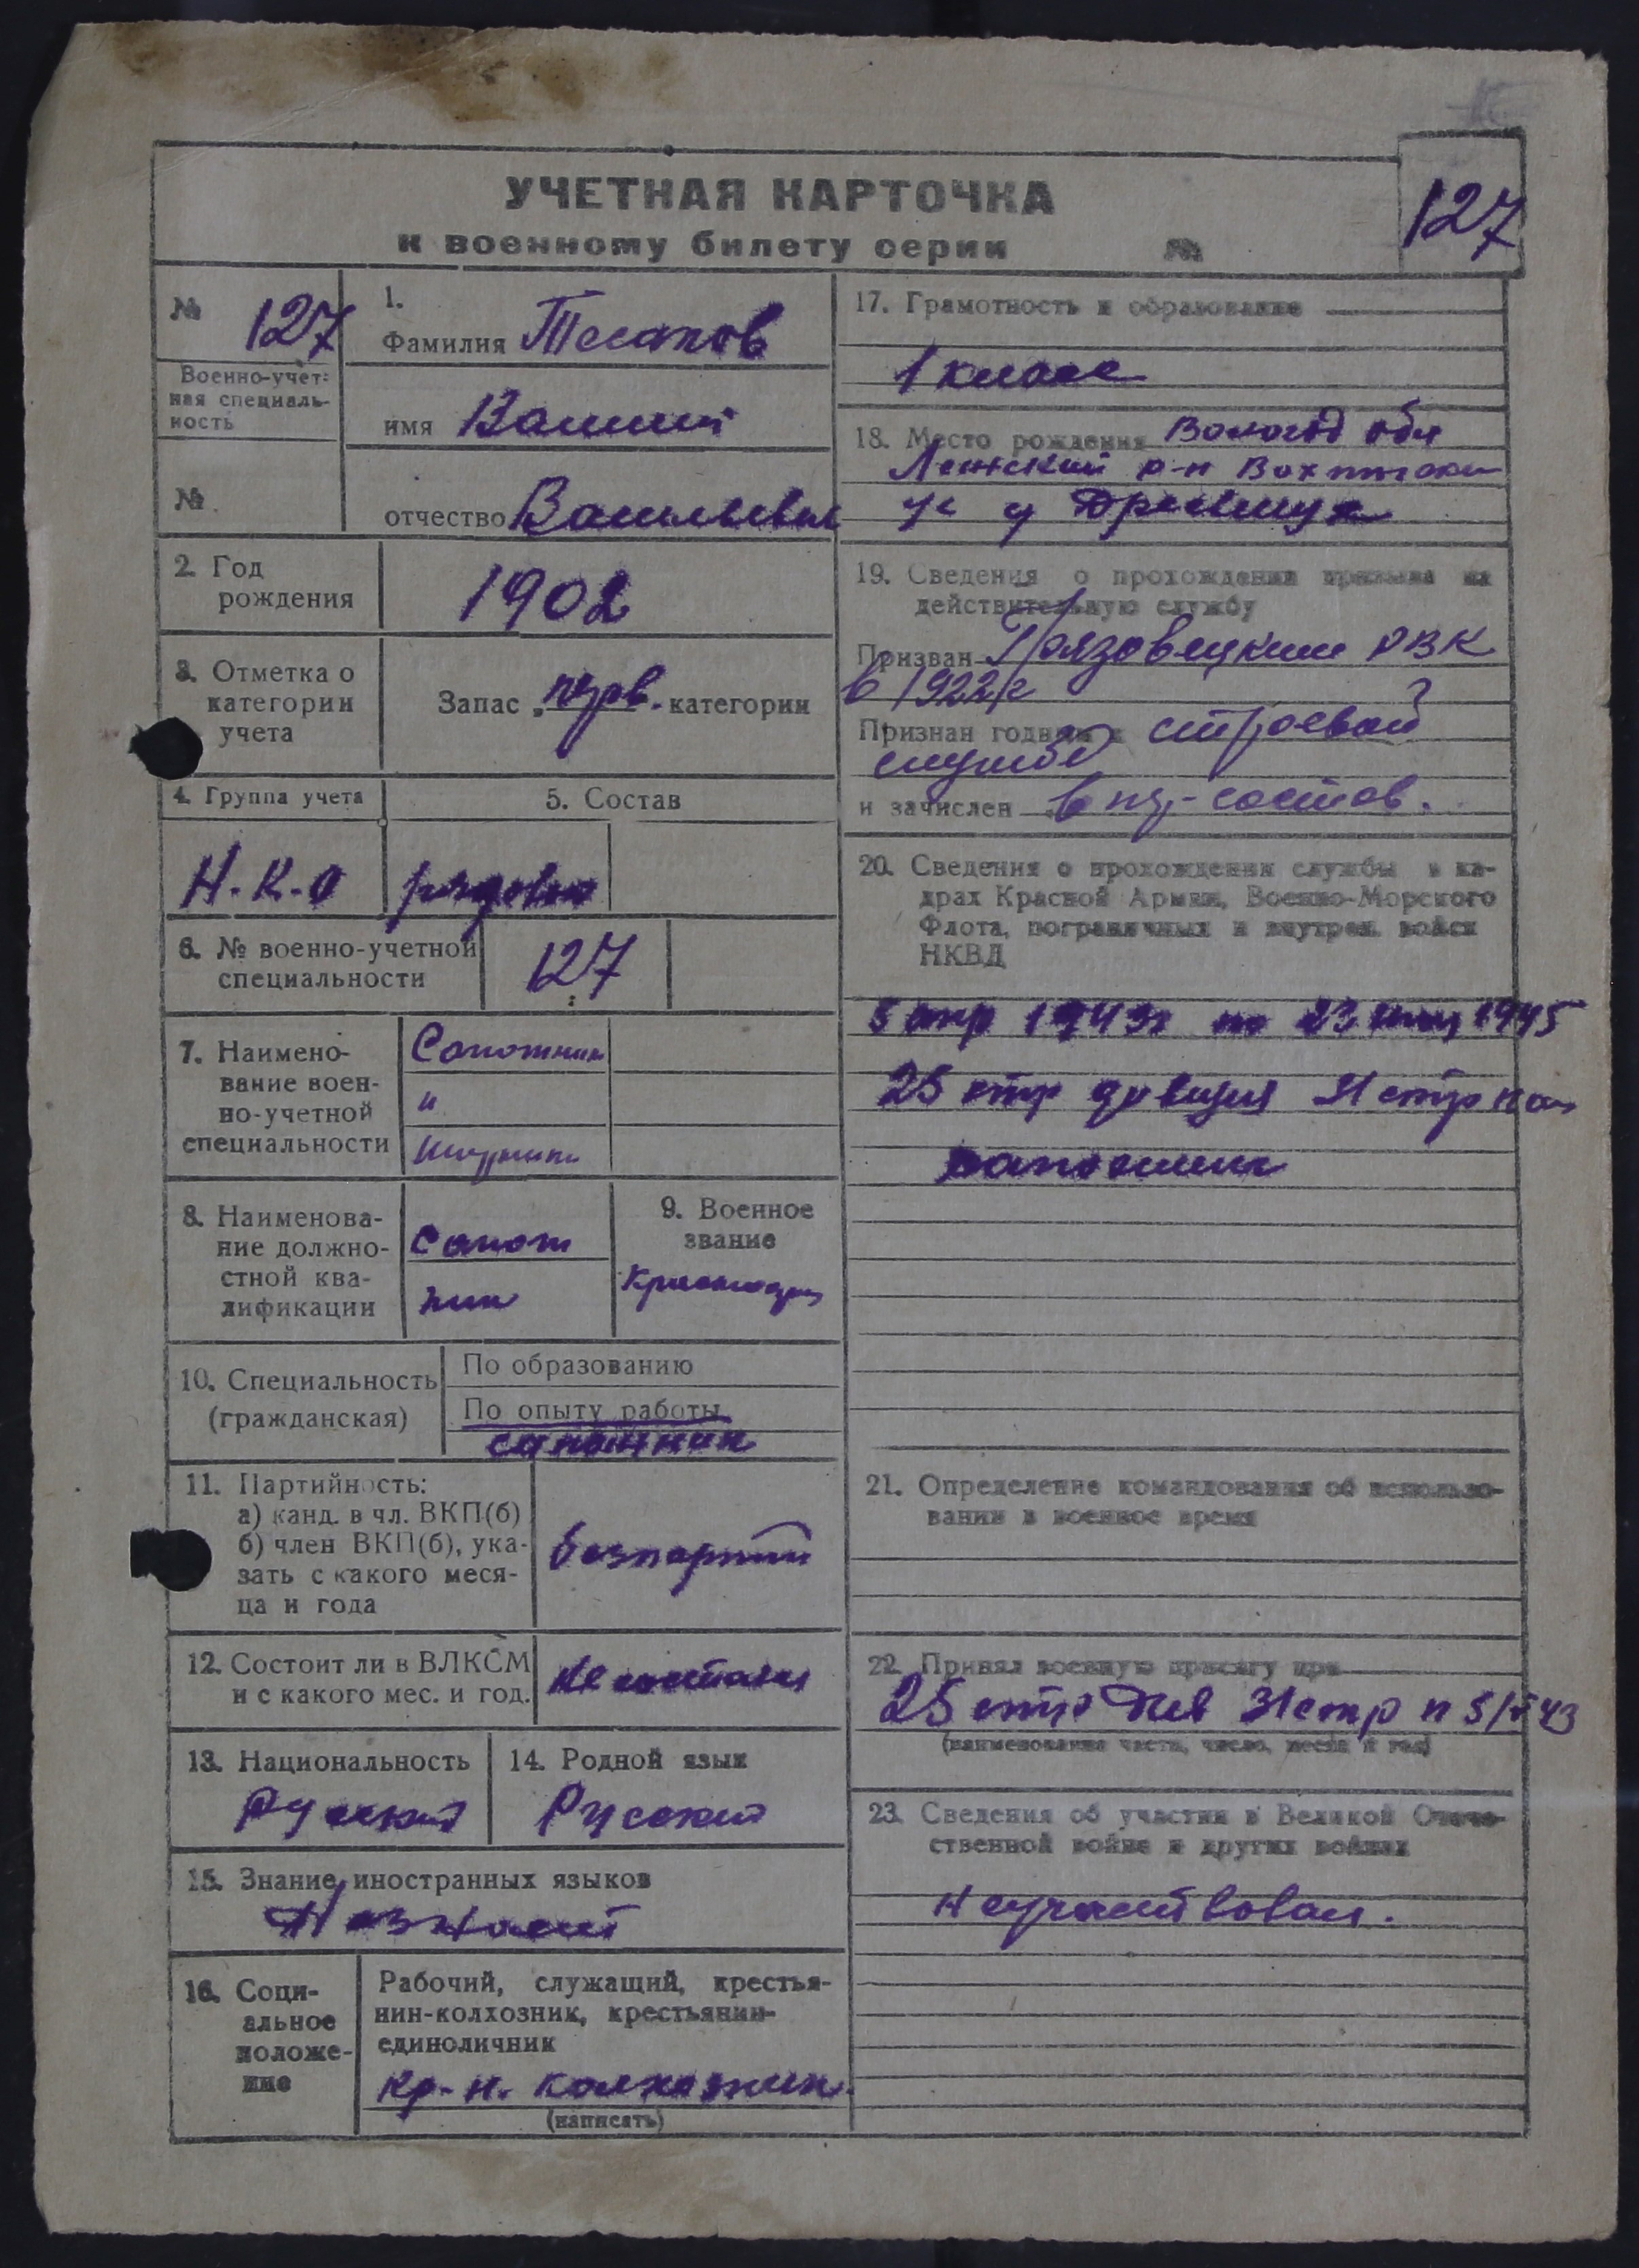 УЧЕТНАЯ КАРТОЧКА
к военному билету серии №
127
№ 127
Военно-учет-
ная специаль-
ность
№
1.
Фамилия Тесаков
имя Василий
отчество Васильевич
2. Год
рождения
1902
3. Отметка о
категории
учета
Запас „перв. категории
4. Группа учета
Н.К.О
5. Состав
рядовой
6. № военно-учетной
специальности
127
7. Наимено-
вание воен-
но-учетной
специальности
Сапожник
"
8. Наименова-
ние должно-
стной ква-
лификации
Сапож
ник
9. Военное
звание
10. Специальность
(гражданская)
По образованию
По опыту работы
сапожник
11. Партийность:
а) канд. в чл. ВКП(б)
б) член ВКП(б), ука-
зать с какого меся-
ца и года
безпартий
12. Состоит ли в ВЛКСМ
и с какого мес. и год.
Не состоял
13. Национальность
Русский
14. Родной язык
Русский
15. Знание иностранных языков
Незнает
16. Соци-
альное
положе-
ние
Рабочий, служащий, крестья-
нин-колхозник, крестьянин-
единоличник
кр-н. колхозник
(написать)
17. Грамотность и образование
1 класс
18. Место рождения Вологод обл
Лежский р-н
с/с д
19. Сведения о прохождении призыва на
действительную службу
Призван Грязовецким РВК
в 1922г
Признан годным к строевой
службе
и зачислен в ряд-состав.
20. Сведения о прохождении службы в ка-
драх Красной Армии, Военно-Морского
Флота, пограничных и внутрен. войск
НКВД
5 апр 1943г по 23 1945
25 стр дивизия 31 стр пол
сапожник
21. Определение командования об использо-
вании в военное время
22. Принял военную присягу при
25 стр Див 31 стр п 43
(наименование части, число, месяц и год)
23. Сведения об участии в Великой Отече-
ственной войне и других войнах
Неучаствовал.